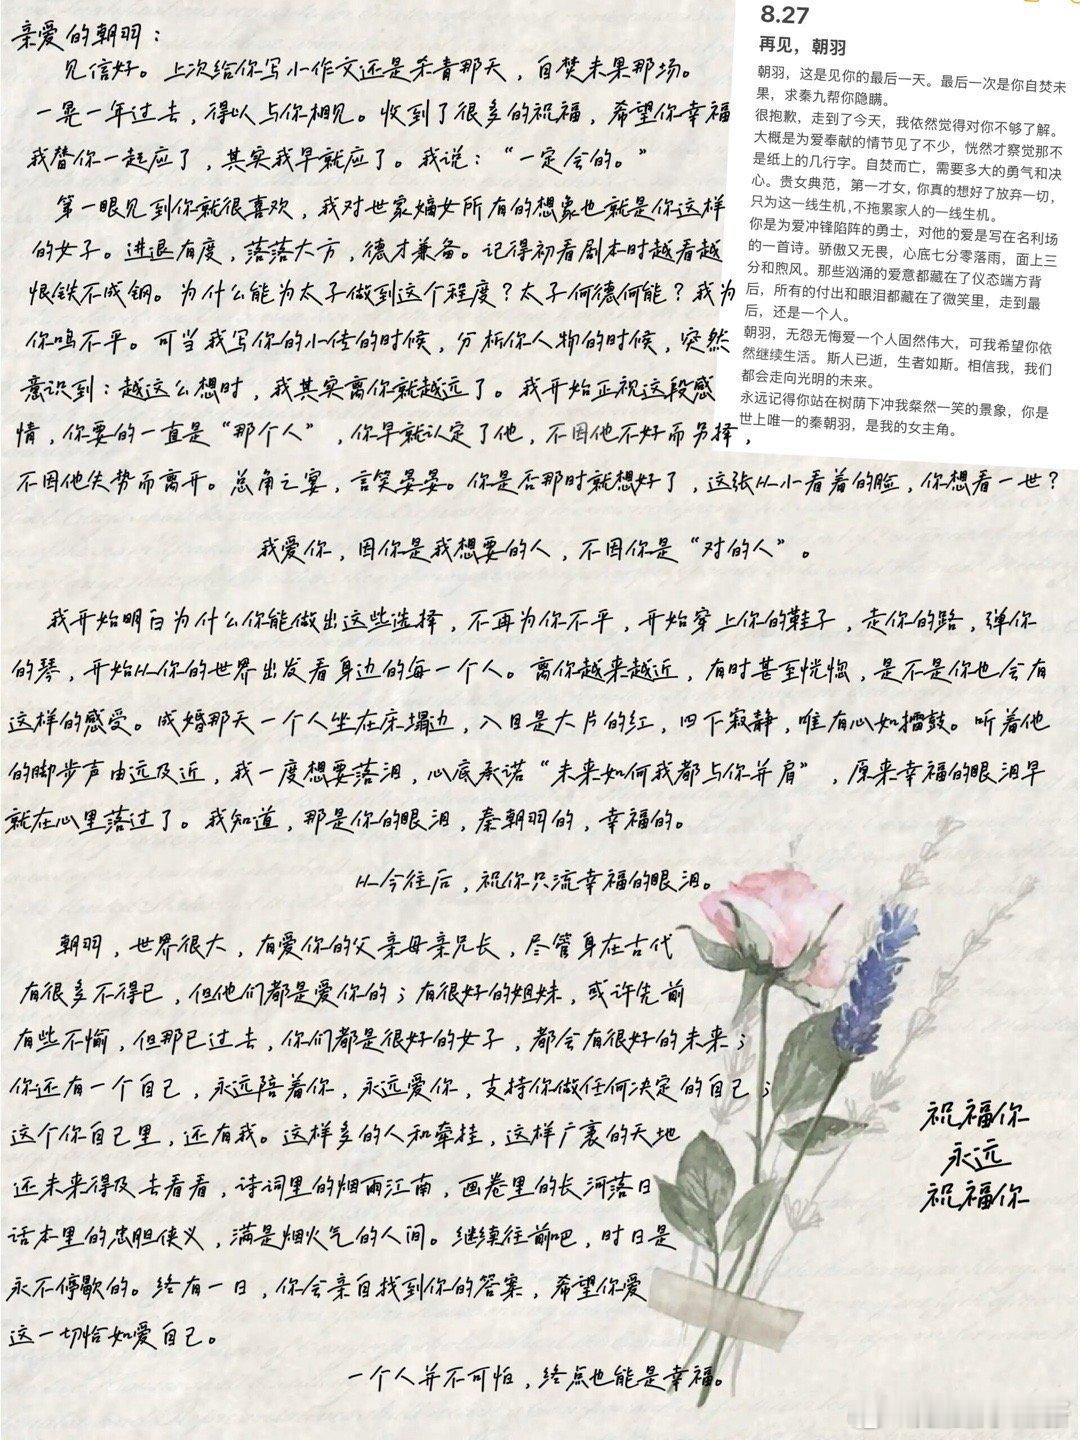 亲爱的朝羽：
见信好。上次给你写小作文还是杀青那天，自焚未果那场。
一晃一年过去，得以与你相见。收到了很多的祝福，希望你幸福
我替你一起应了，其实我早就应了。我说：“一定会的。”
第一眼见到你就很喜欢，我对世家嫡女所有的想象也就是你这样
的女子。进退有度，落落大方，德才兼备。记得初看剧本时越看越
恨铁不成钢。为什么能为太子做到这个程度？太子何德何能？我为
你鸣不平。可当我写你的小传的时候，分析你人物的时候，突然
意识到：越这么想时，我其实离你就越远了。我开始正视这段感
情，你要的一直是“那个人”，你早就认定了他，不因他不好而另择，
不因他失势而离开。总角之宴，言笑晏晏。你是否那时就想好了，这张从小看着的脸，你想看一世？
我爱你，因你是我想要的人，不因你是“对的人”。
我开始明白为什么你能做出这些选择，不再为你不平，开始穿上你的鞋子，走你的路，弹你
的琴，开始从你的世界出发看身边的每一个人。离你越来越近，有时甚至恍惚，是不是你也会有
这样的感受。成婚那天一个人坐在床塌边，入目是大片的红，四下寂静，唯有心如擂鼓。听着他
的脚步声由远及近，我一度想要落泪，心底承诺“未来如何我都与你并肩”，原来幸福的眼泪早
就在心里落过了。我知道，那是你的眼泪，秦朝羽的，幸福的。
从今往后，祝你只流幸福的眼泪。
朝羽，世界很大，有爱你的父亲母亲兄长，尽管身在古代
有很多不得已，但他们都是爱你的；有很好的姐妹，或许先前
有些不愉，但那已过去，你们都是很好的女子，都会有很好的未来；
你还有一个自己，永远陪着你，永远爱你，支持你做任何决定的自己；
这个你自己里，还有我。这样多的人和牵挂，这样广袤的天地
还未来得及去看看，诗词里的烟雨江南，画卷里的长河落日
话本里的忠胆侠义，满是烟火气的人间。继续往前吧，时日是
永不停歇的。终有一日，你会亲自找到你的答案，希望你爱
这一切恰如爱自己。
一个人并不可怕，终点也能是幸福。
祝福你
永远
祝福你
8.27
再见，朝羽
朝羽，这是见你的最后一天。最后一次是你自焚未
果，求秦九帮你隐瞒。
很抱歉，走到了今天，我依然觉得对你不够了解。
大概是为爱奉献的情节见了不少，恍然才察觉那不
是纸上的几行字。自焚而亡，需要多大的勇气和决
心。贵女典范，第一才女，你真的想好了放弃一切，
只为这一线生机，不拖累家人的一线生机。
你是为爱冲锋陷阵的勇士，对他的爱是写在名利场
的一首诗。骄傲又无畏，心底七分零落雨，面上三
分和煦风。那些汹涌的爱意都藏在了仪态端方背
后，所有的付出和眼泪都藏在了微笑里，走到最
后，还是一个人。
朝羽，无怨无悔爱一个人固然伟大，可我希望你依
然继续生活。斯人已逝，生者如斯。相信我，我们
都会走向光明的未来。
永远记得你站在树荫下冲我粲然一笑的景象，你是
世上唯一的秦朝羽，是我的女主角。